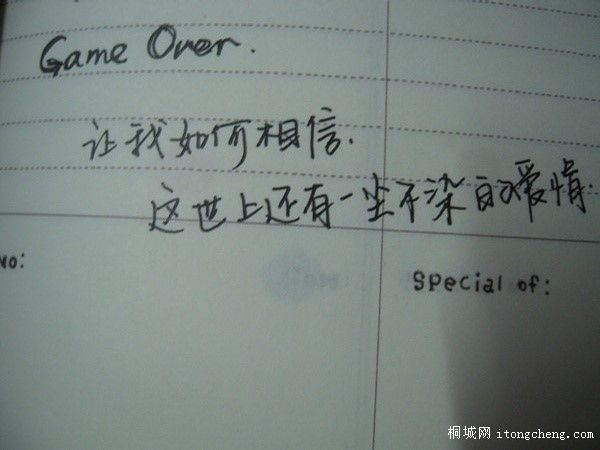 Game Over.
让我如何相信.
这世上还有一尘不染的爱情.
No:
Special of:
桐城网 itongcheng.com